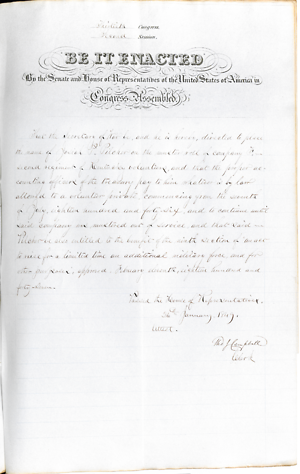 Thirtieth Congress,
Second Session,
BE IT ENACTED
By the Senate and House of Representatives of the United States of America in
Congress Assembled,
That the Secretary of War be, and he is hereby directed to place
the name of James on the muster roll of company
second regiment of Kentucky volunteers, and that the proper ac-
counting officers of the treasury pay to him by law
allowed to a volunteer private, commencing from the month
of eighteen hundred and forty and to continue until
said company was mustered out of service and that said
entitled to the benefit of the section of an act
to raise for a limited time an additional military force, and for
other purposes, approved February eleventh, eighteen hundred and
forty seven.
Passed the House of Representatives,
January, 1849.
Attest,
Tho J. Campbell
Clerk